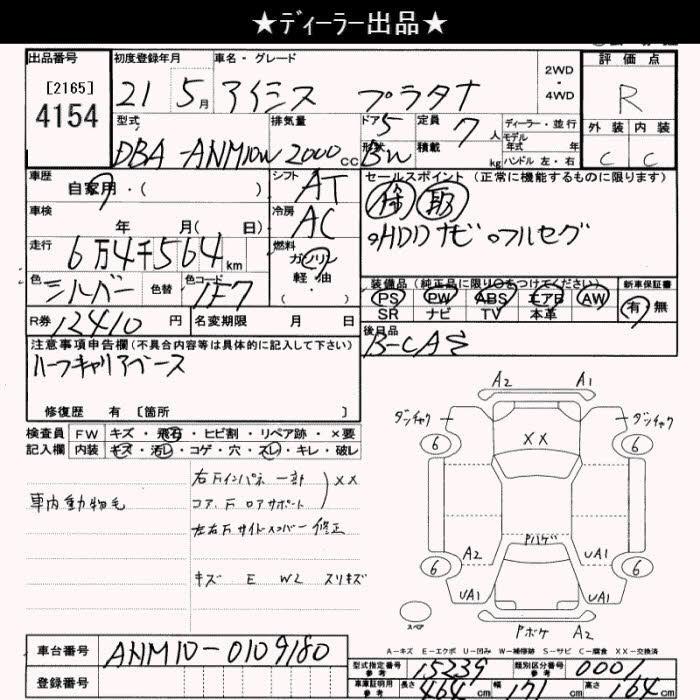 ★ディーラー出品★
出品番号 初度登録年月 車名・グレード 評価点
[2165] 21 5月 アイシス プラタナ 2WD・4WD R
4154
型式 排気量 ドア 定員 ディーラー・並行 外装 内装
DBA-ANM10W 2000cc 5 7人 モデル年式 年 C C
形状 積載 kg ハンドル 左・右
BW
車歴 シフト セールスポイント(正常に機能するものに限ります)
自家用・( ) AT 保 取
車検 冷房
年 月( 日) AC ・HDDナビ ・フルセグ
走行 燃料
6万4千564km ガソリン
軽・油
( ・ )
色 色替 色コード 装備品(純正品に限り○をつけてください) 新車保証書
シルバー 1F7 PS PW ABS エアB AW 有 無
SR ナビ TV 本革
R券 12410円 名変期限 月 日 後日品
B-CAS
注意事項申告欄(不具合内容等は具体的に記入して下さい)
ハーフキャリアベース
修復歴 有 [箇所 ]
検査員 FW キズ・飛石・ヒビ割・リペア跡・×要
記入欄 内装 キズ・汚レ・コゲ・穴・スレ・キレ・破レ
右Fインパネ 一部 XX
車内動物毛 コア、F ロアサポート
左右Fサイドメンバー 修正
キズ E W2 スリキズ
A2 A1
ダンチャク ダンチャク
6 XX 6
Pハゲ
A2 UA1
6 6
UA1 UA1
スペア Pボケ A2
A-キズ E-エクボ U-凹み W-補修跡 S-サビ C-腐食 XX-交換済
車台番号 ANM10-0109180
型式指定番号 参考 15239 類別区分番号 参考 0001
登録番号 車庫証明用 参考 長さ 464cm 幅 171cm 高さ 164cm